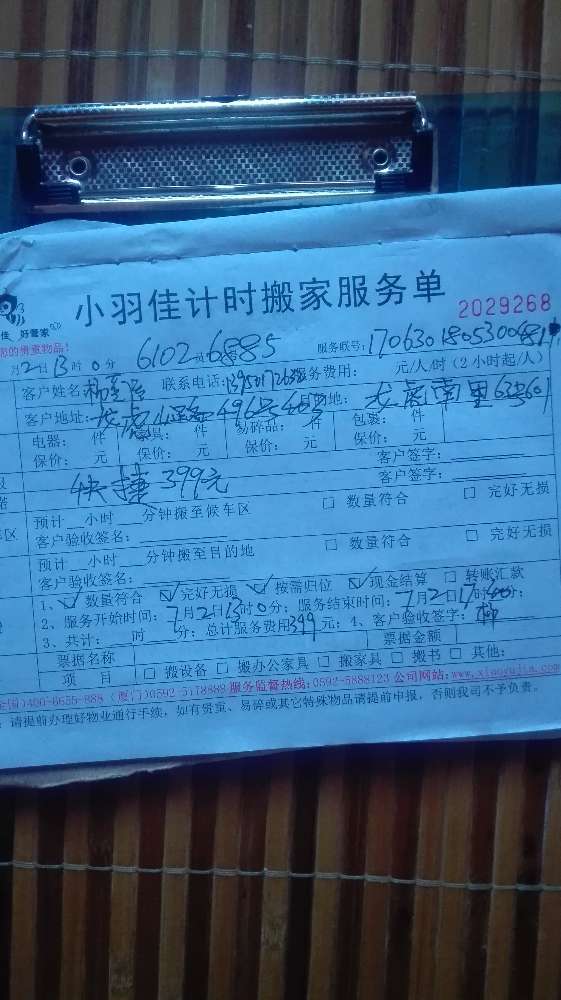 小羽佳计时搬家服务单
2029268
佳 好管家
您的贵重物品!
月2日13时0分 6102 6885 服务联号:170630180530081
客户姓名: 联系电话: 服务费用: 元/人/时(2小时起/人)
客户地址: 龙虎山路496号 地: 龙虎南里63号601
电器: 件 家具: 件 易碎品: 件 包裹: 件
保价: 元 保价: 元 保价: 元 保价: 元
快捷399元 客户签字:
客户签字:
预计__小时__分钟搬至候车区 □ 数量符合 □ 完好无损
客户验收签名:
预计__小时__分钟搬至目的地 □ 数量符合 □ 完好无损
客户验收签名:
1、☑ 数量符合 ☑ 完好无损 ☑ 按需归位 ☑ 现金结算 □ 转账汇款
2、服务开始时间: 7月2日13时0分; 服务结束时间: 7月2日17时 分;
3、共计: 时 分; 总计服务费用399元; 4、客户验收签字: 柳
票据名称 票据金额
项 目 □ 搬设备 □ 搬办公家具 □ 搬家具 □ 搬书 □ 其他:
全国)400-6655-888 (厦门)0592-5118889 服务监督热线:0592-5888123 公司网站:www.xiaoyujia.com
:请提前办理好物业通行手续,如有贵重、易碎或其它特殊物品请提前申报,否则我司不予负责。